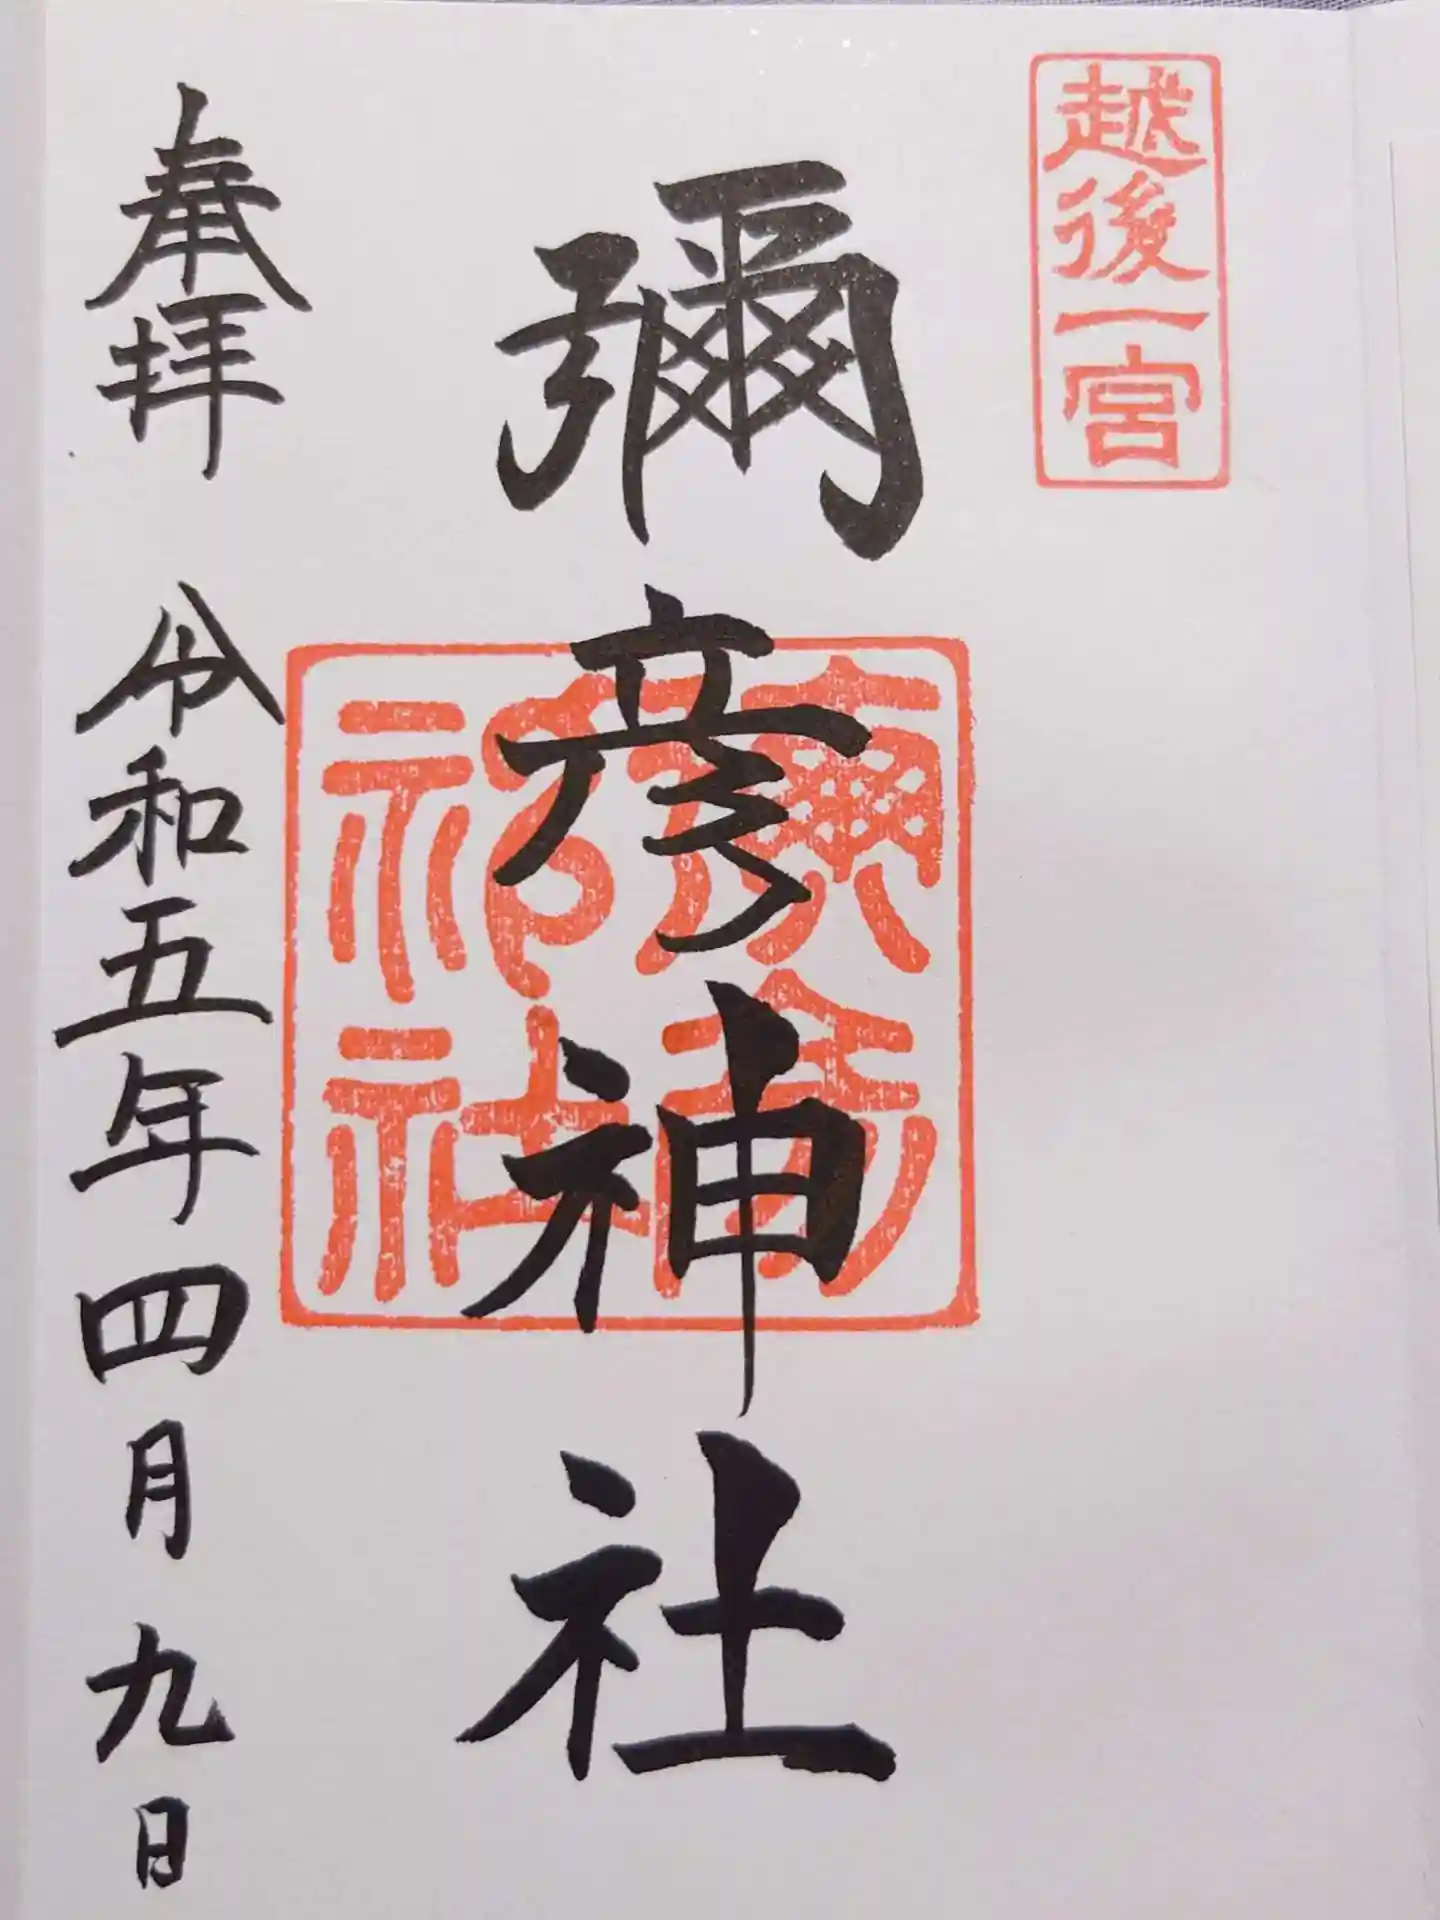 越後一宮
彌彦神社
彌彦神社
奉拝 令和五年四月九日